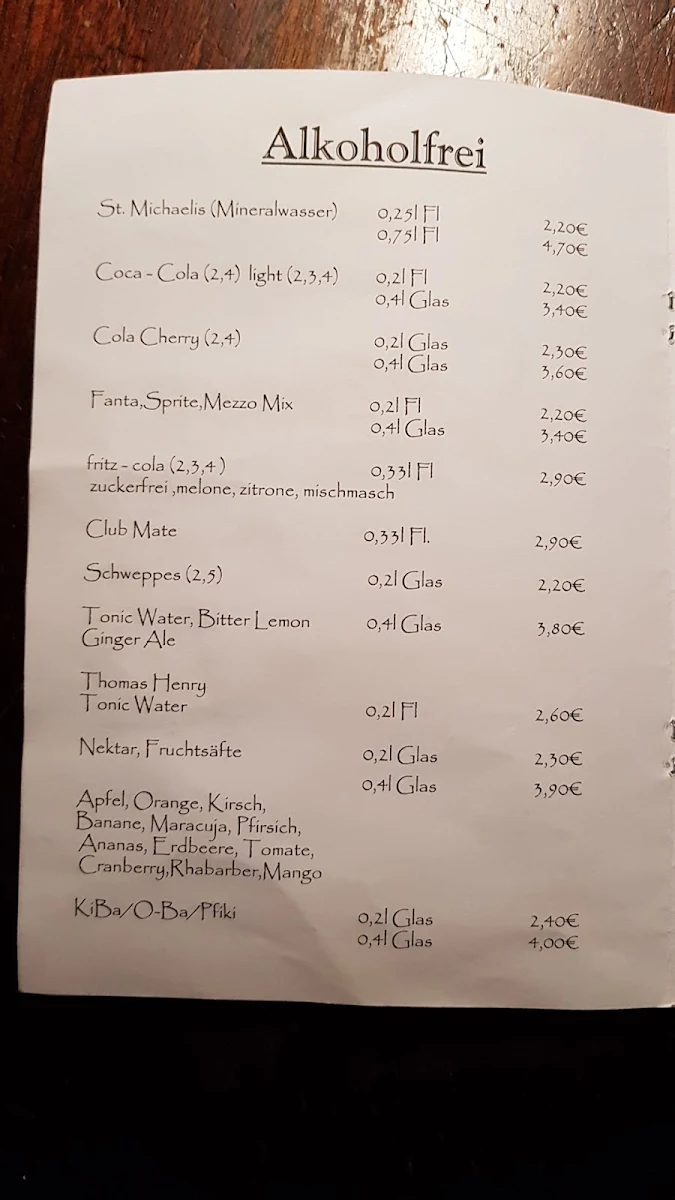 Alkoholfrei
St. Michaelis (Mineralwasser) 0,25l Fl 2,20€
0,75l Fl 4,70€
Coca - Cola (2,4) light (2,3,4) 0,2l Fl 2,20€
0,4l Glas 3,40€
Cola Cherry (2,4) 0,2l Glas 2,30€
0,4l Glas 3,60€
Fanta,Sprite,Mezzo Mix 0,2l Fl 2,20€
0,4l Glas 3,40€
fritz - cola (2,3,4 ) 0,33l Fl 2,90€
zuckerfrei ,melone, zitrone, mischmasch
Club Mate 0,33l Fl. 2,90€
Schweppes (2,5) 0,2l Glas 2,20€
Tonic Water, Bitter Lemon 0,4l Glas 3,80€
Ginger Ale
Thomas Henry
Tonic Water 0,2l Fl 2,60€
Nektar, Fruchtsäfte 0,2l Glas 2,30€
0,4l Glas 3,90€
Apfel, Orange, Kirsch,
Banane, Maracuja, Pfirsich,
Ananas, Erdbeere, Tomate,
Cranberry,Rhabarber,Mango
KiBa/O-Ba/Pfiki 0,2l Glas 2,40€
0,4l Glas 4,00€